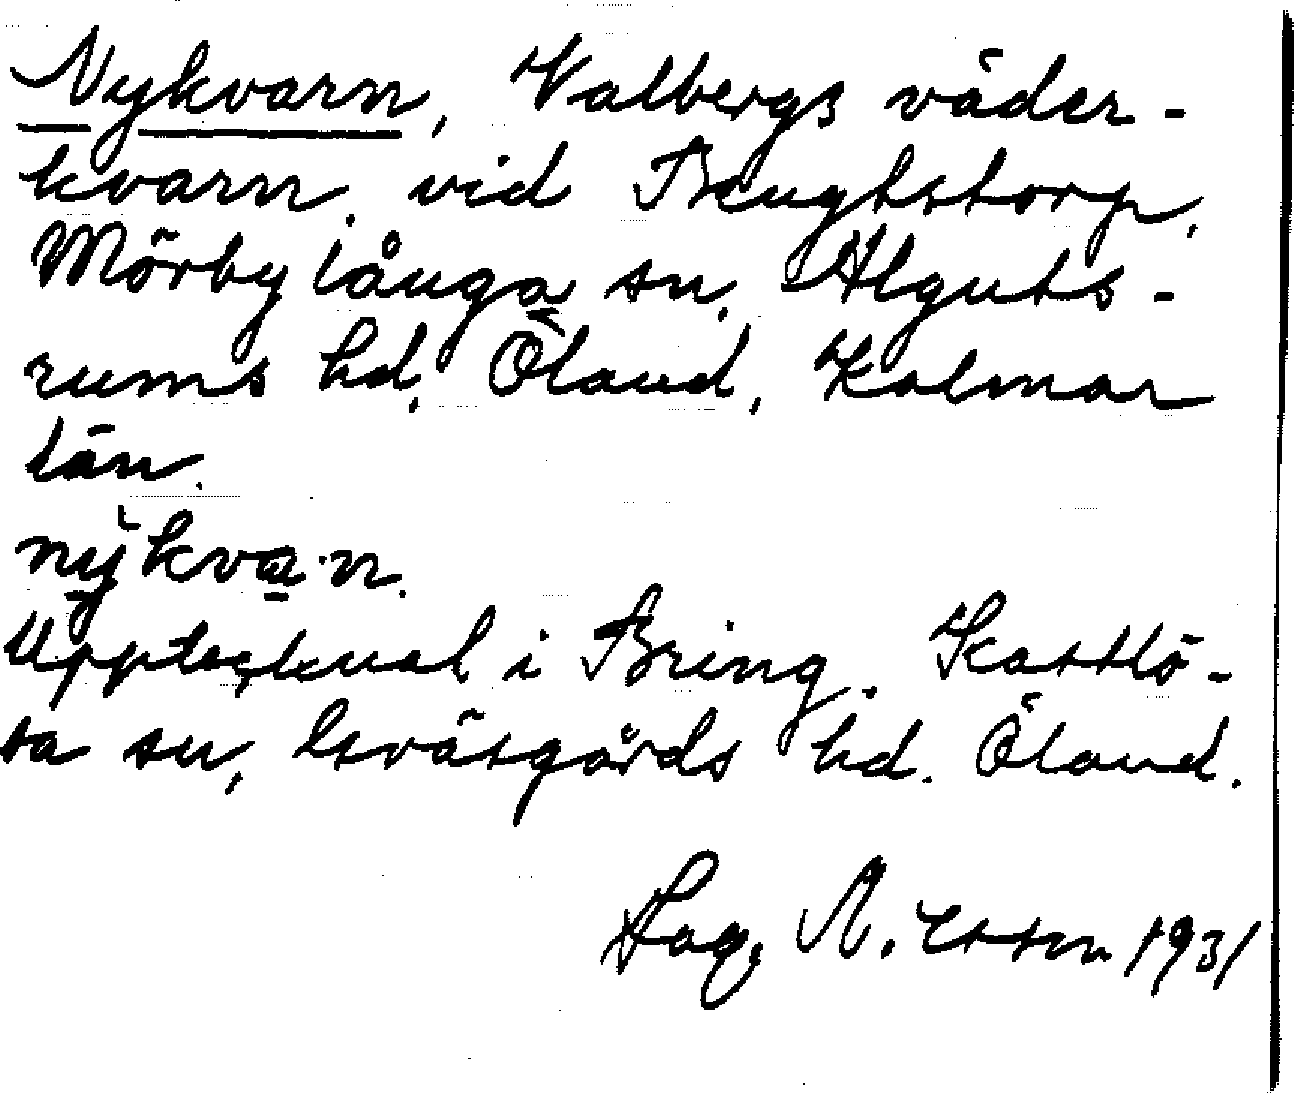 Nykvarn, Valbergs väder-
kvarn. vid Bengtstorp,
Mörbylånga sn, Alguts-
rums hd, Öland, Kalmar
län.
nykva·n.
Upptecknad i Bring. Kastlö-
sa sn, Gräsgårds hd. Öland.
Hag. N.
1931